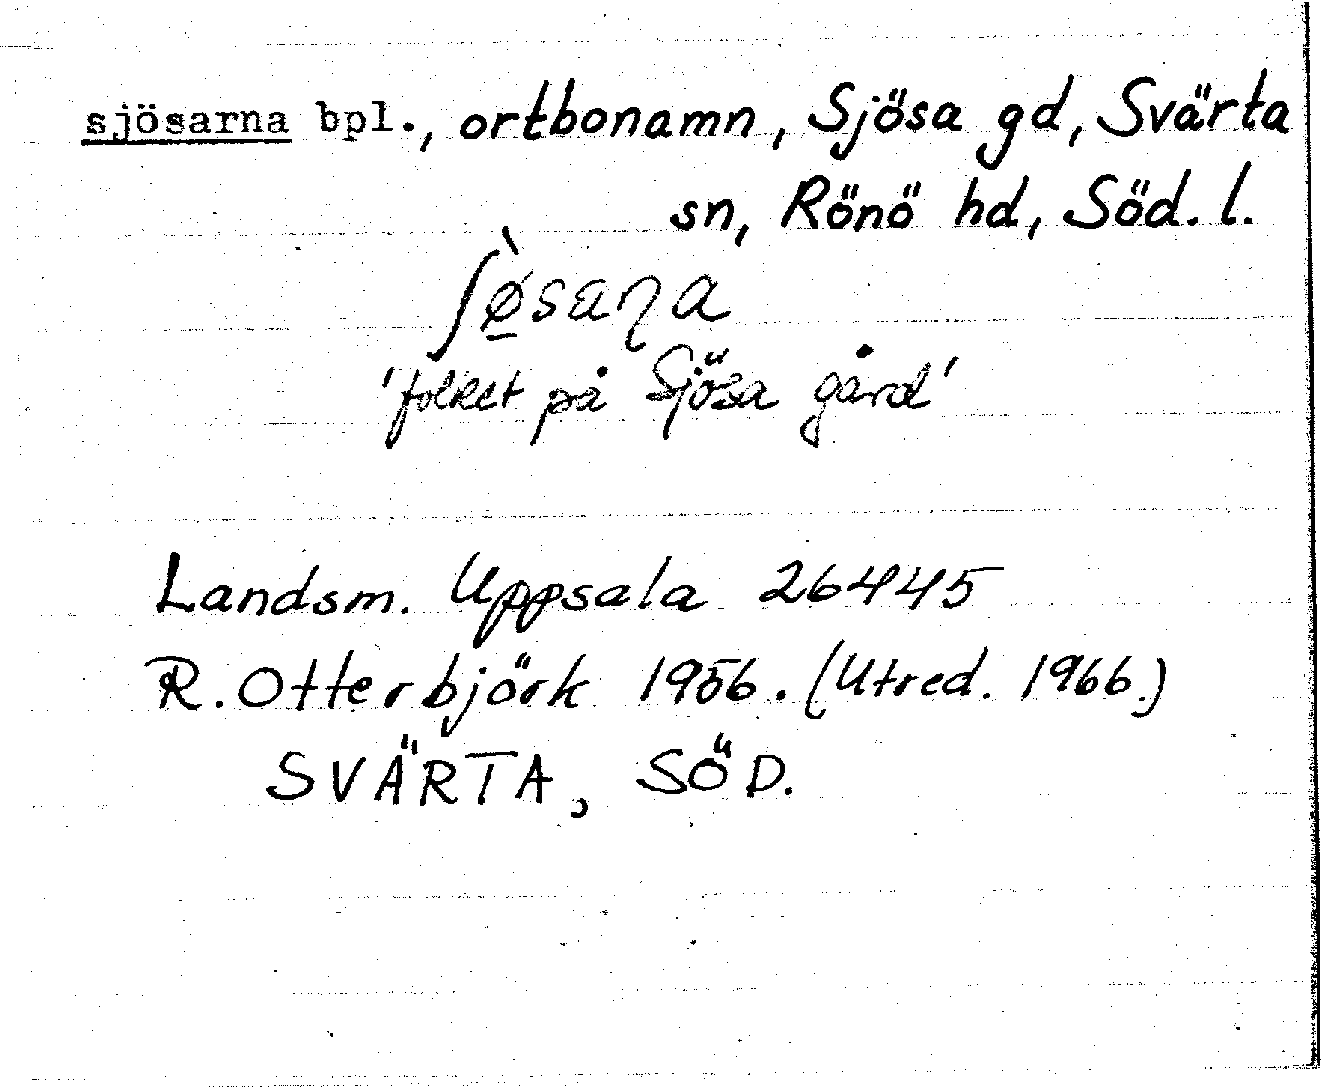 sjösarna bpl., ortbonamn, Sjösa gd, Svärta
sn, Rönö hd, Söd. l.
ʃø̱̀saɳa
'folket på Sjösa gård'
Landsm. Uppsala 26445
R. Otterbjörk 1956. (Utred. 1966.)
SVÄRTA, SÖD.